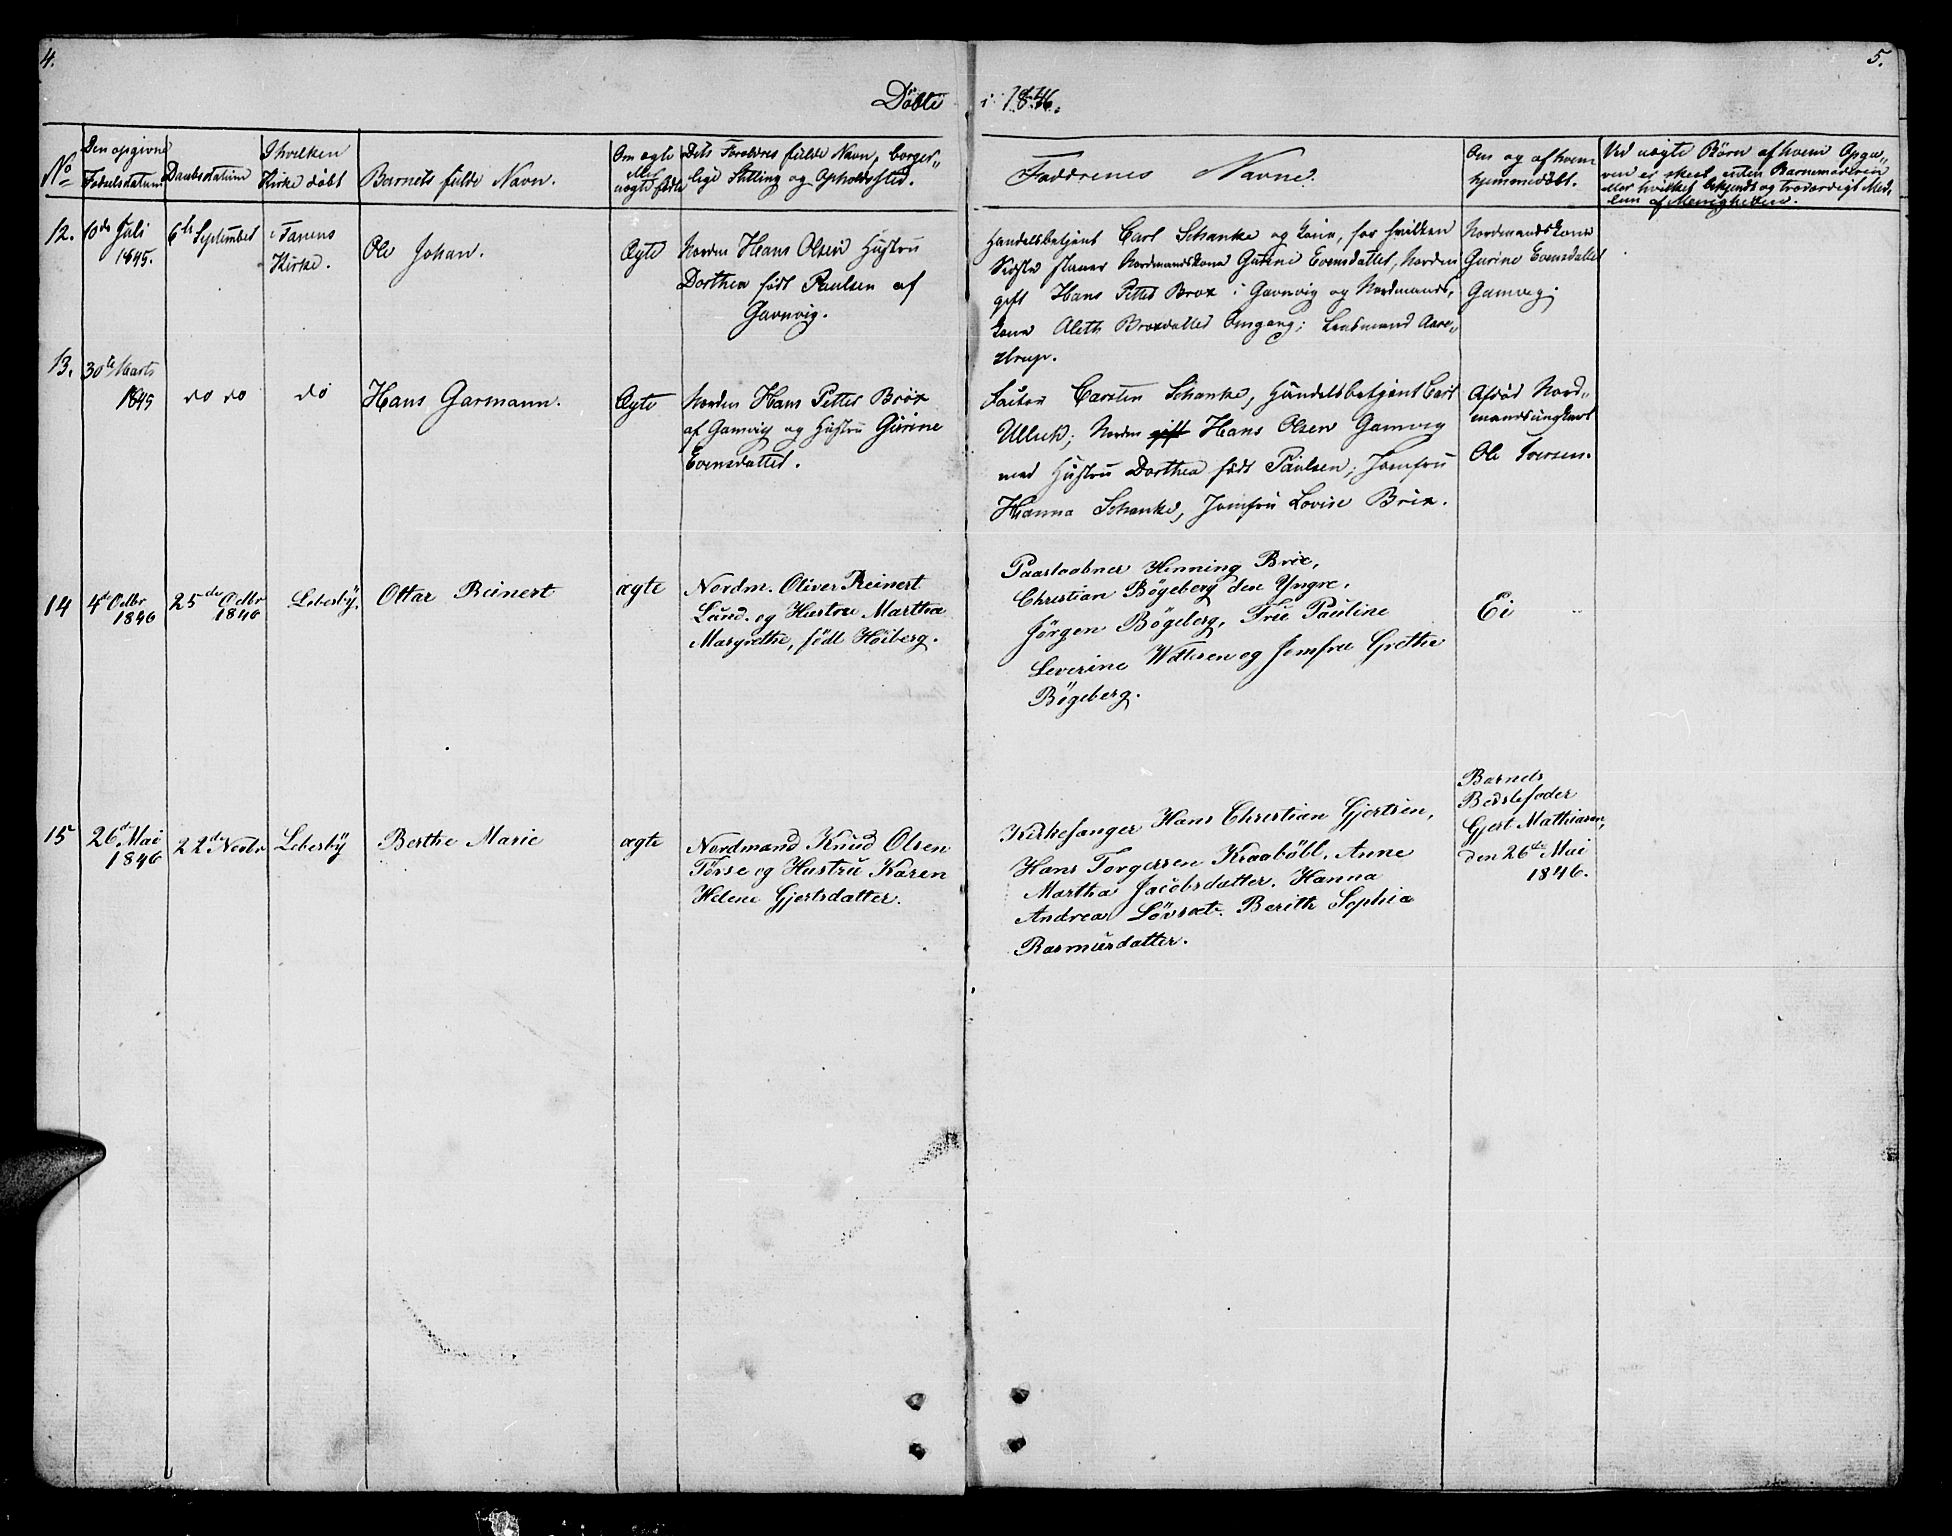 4.
5.
Döbte i 1846.
No
Den opgivne
Födselsdatum
Daabsdatum
I hvilken
Kirke döbt
Barnets fulde Navn.
Om ægte
eller
uægte födte
Dets Forældres fulde Navn, borger„
lige Stilling og Opholdssted.
Faddrenes Navne.
Om og af hvem
hjemmedöbt.
Ved uægte Börn af hvem Opga„
ven er skeet, enten Barnemoderen
eller hvilket bekjendt og troværdigt Med„
lem af Menigheden.
12.
10de Juli
1845.
6te September
i Tanens
Kirke.
Ole Johan.
Ægte
Norden Hans Olsen Hustru
Dorthea födt Paulsen af
Gamvig.
Handelsbetjent Carl Schanke og Kone, for hvilken
Sidste staaer Nordmandskone Gurine Evensdatter, Norden
gift Hans Petter Brox i Gamvig og Nordmands„
kone Aleth Broxdatter Omgang; Lensmand Aare„
strup.
Nordmandskone
Gurine Evensdatter
Gamvig.
13.
30te Marts
1845
do do
do
Hans Garmann.
Ægte
Norden Hans Petter Brox
af Gamvig og Hustru Gurine
Evensdatter.
Carsten Schanke, Handelsbetjent Carl
Ulrich; Norden gift Hans Olsen Gamvig
med Hustru Dorthea födt Paulsen; Jomfru
Hanna Schanke, Jomfru Lovise Brix.
Afdöd Nord„
mandsungkarl
Ole Iversen.
14
4de Octbr
1846
25de Octbr
1846
Lebesby.
Ottar Reinert
ægte
Nordm. Oliver Reinert
Lund. og Hustru Martha
Margrethe, födt Höiberg.
Paastaabner Henning Brix,
Christian Bögeberg den Yngre,
Jörgen Bögeberg, Frue Pauline
Severine Wattesen og Jomfru Grethe
Bögeberg.
Ei
15
26de Mai
1846
22de Novbr
Lebesby
Berthe Marie
ægte
Nordmand Knud Olsen
Torse og Hustru Karen
Helene Gjertsdatter.
Kirkesanger Hans Christian Gjertsen,
Hans Torgersen Kraaböbl, Anne
Martha Jacobsdatter. Hanna
Andrea Lövsæt. Berith Sophia
Rasmusdatter.
Barnets
Bedstefader
Gjert Mathiasen,
den 26de Mai
1846.